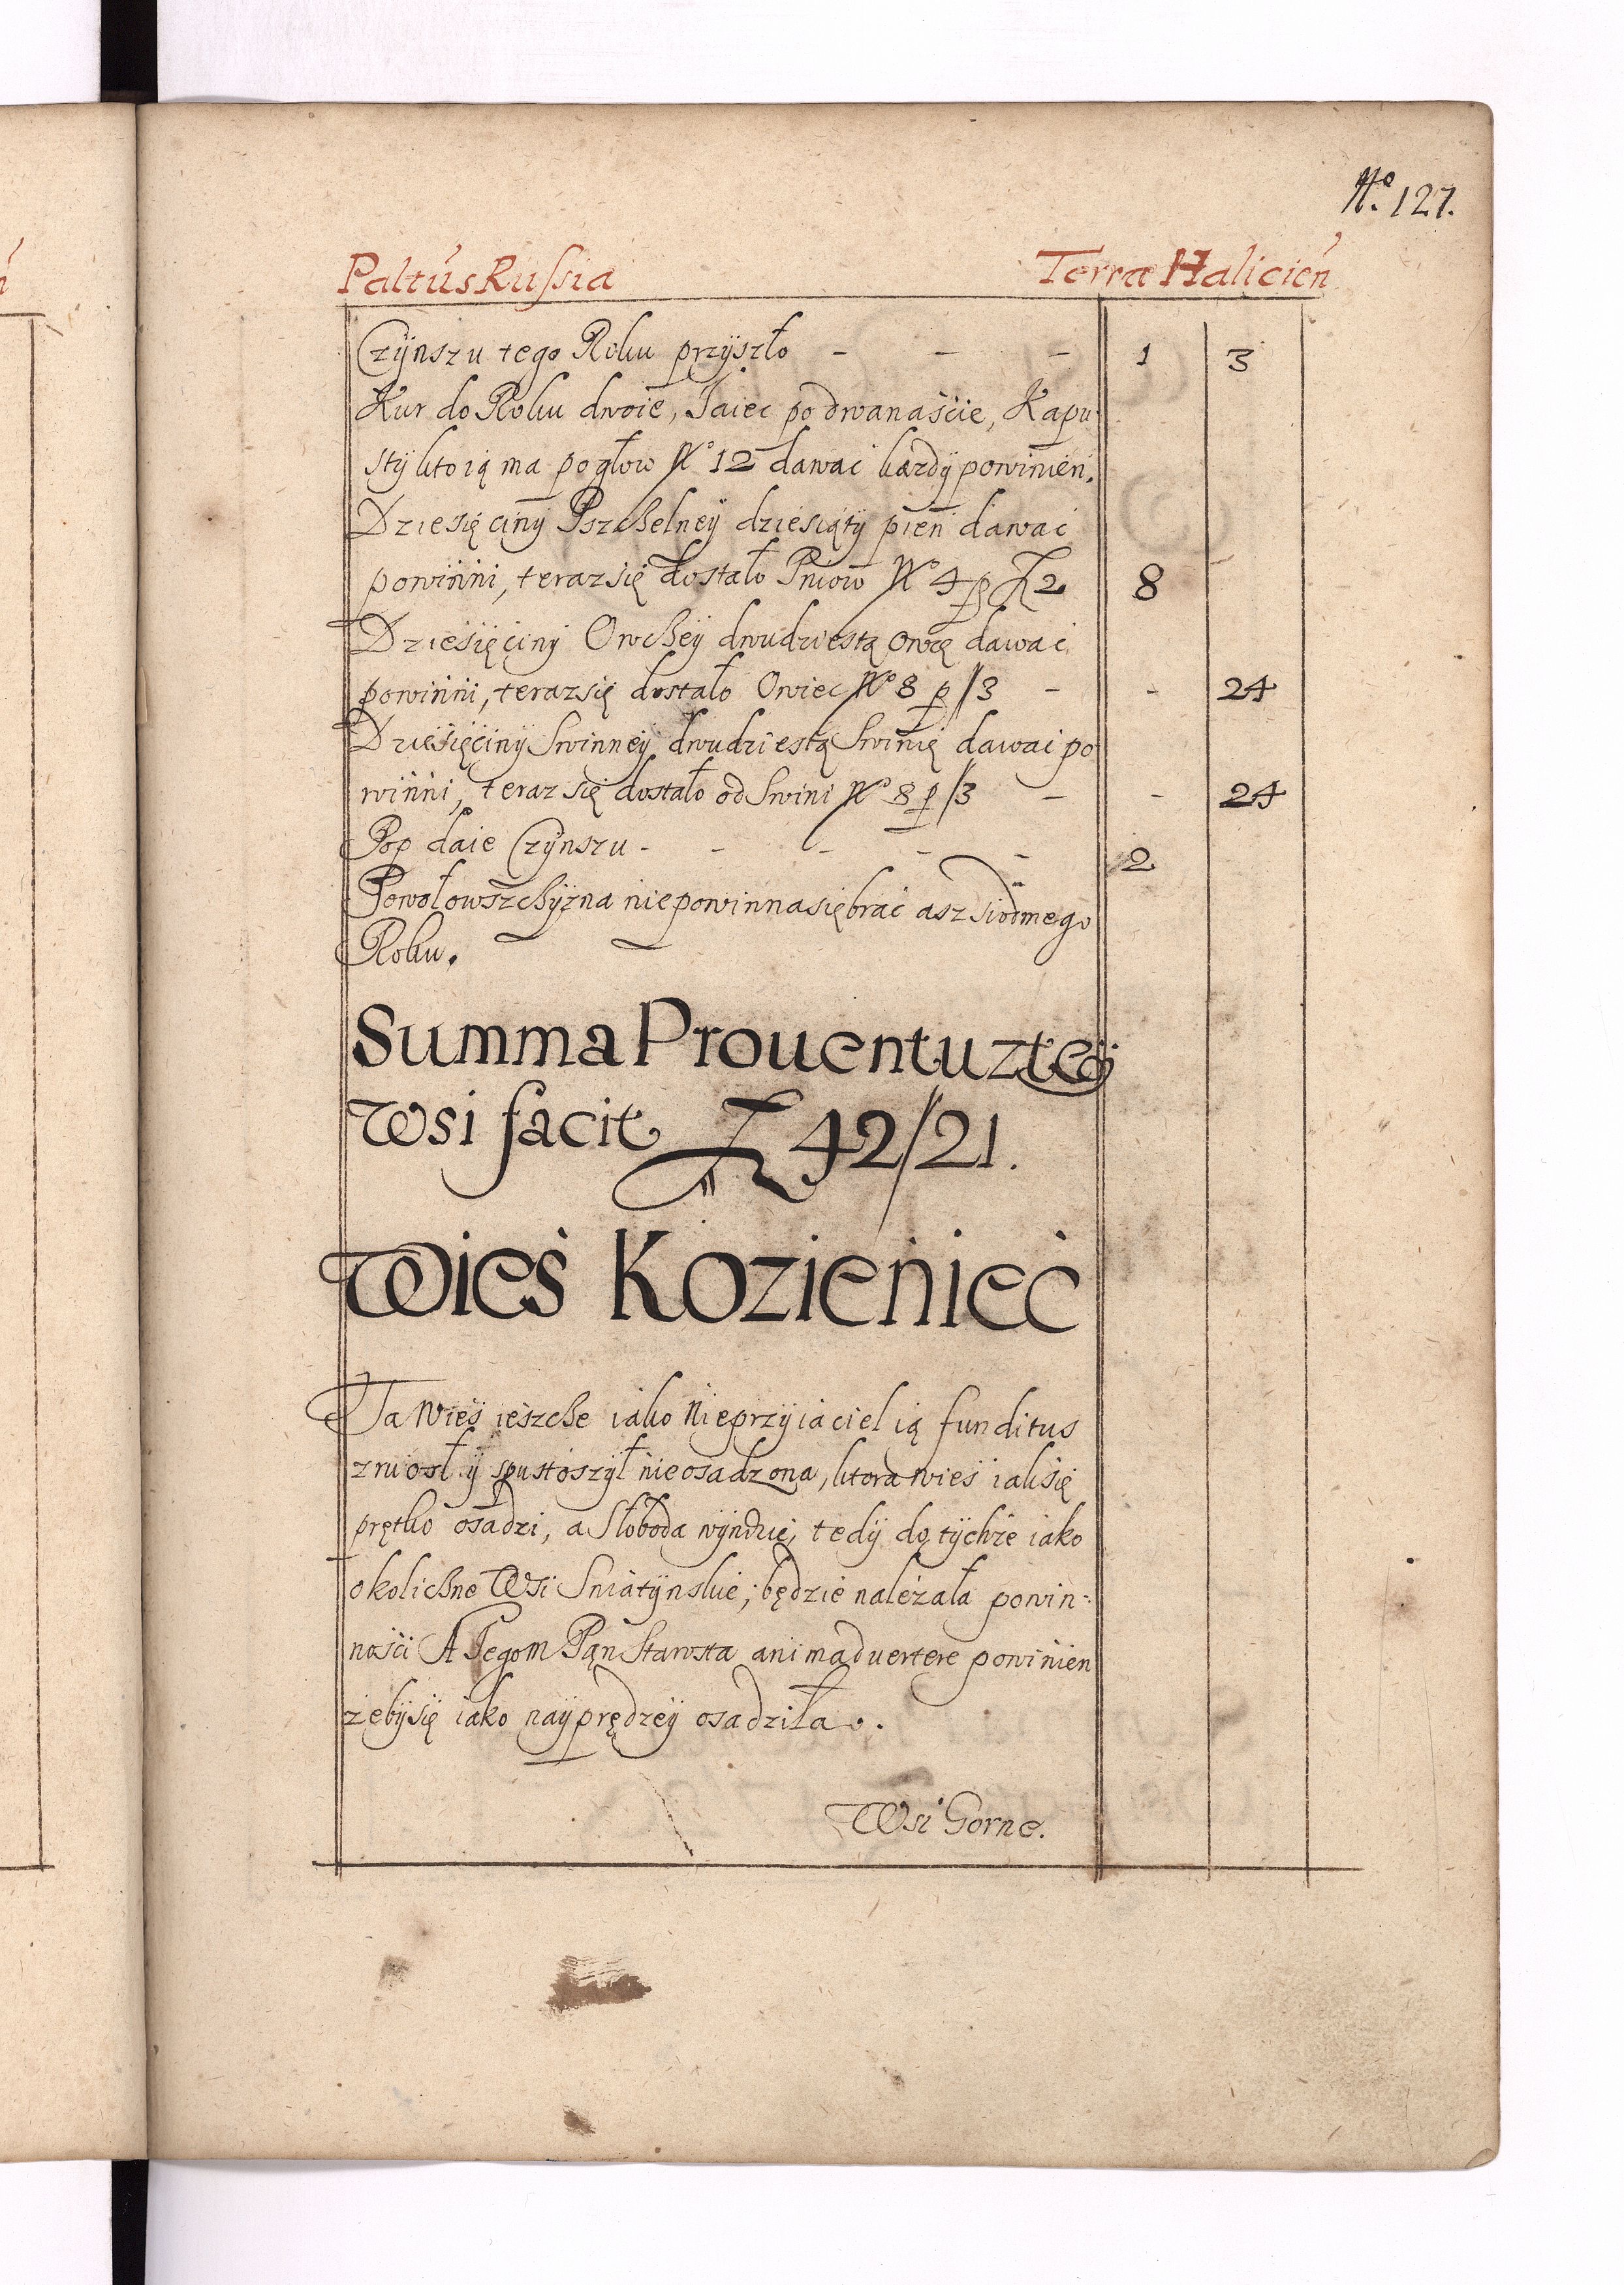 No. 127.
Paltus Russia Terra Halicien
Czÿnszu tego Roku przÿszło - - - 1 3
Kur do Roku dwoie, Jaiec podwanaście, Kapu-
stÿ ktoią ma pogłow No 12 dawać każdÿ powinien.
Dziesięcinÿ Pszchelneÿ dziesiątÿ pień dawać
powinni, teraz się dostało Pniow No 4 p Z 2 8
Dziesięcinÿ Owcheÿ dwudziestą owcę dawać
powinni, teraz się dostało Owiec No 8 p /3 - - 24
Dziesięcinÿ Swinneÿ dwudziestą Swinię dawać po
winni, teraz się dostało od Swini No 8 p /3 - - 24
Pop daie Czÿnszu - - - - - 2
Powołowszchÿzna niepowinna się brać asz siodmego
Roku.
Summa Prouentu z teÿ
Wsi facit Z 42/21.
Wieś Kozieniec
Ta Wieś ieszche iako Nieprzÿiaciel ią funditus
zniosł ÿ spustoszÿł nieosadzona, ktora wieś iak się
prętko osadzi, a Słoboda wÿndzie, tedÿ do tÿchże iako
okolichne Wsi Sniatÿnskie, będzie należała powin-
ności A Jegom Pan Starosta animaduertere powinien
zebÿ się iako naÿprędzeÿ osadziła.
Wsi Gorne.